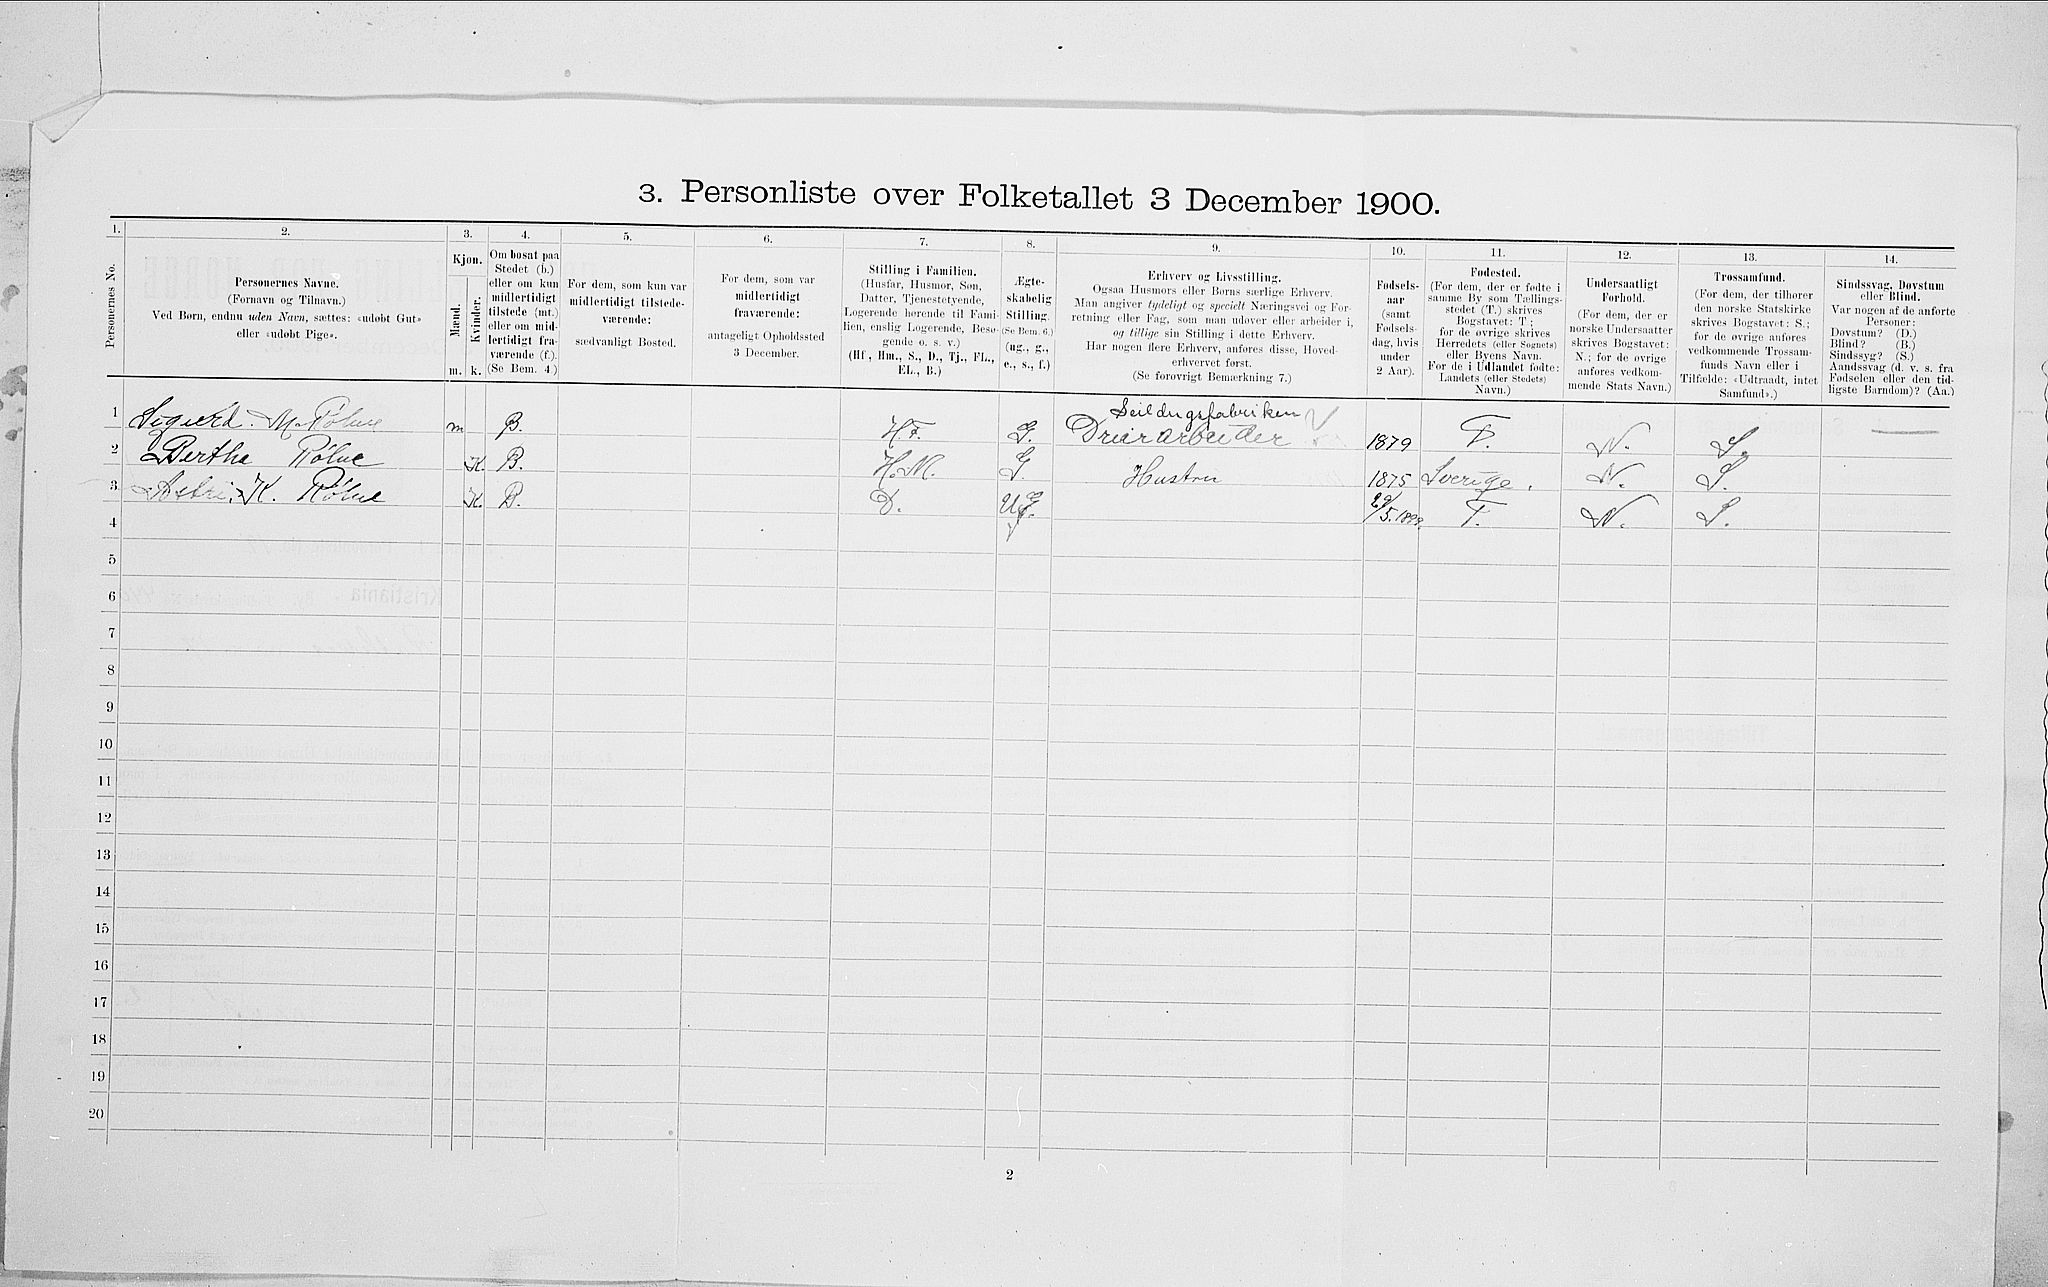 3. Personliste over Folketallet 3 December 1900.
1. 2. 3. 4. 5. 6. 7. 8. 9. 10. 11. 12. 13. 14.
Personernes No.
Personernes Navne.
(Fornavn og Tilnavn.)
Ved Børn, endnu uden Navn, sættes: «udøbt Gut»
eller «udøbt Pige».
Kjøn.
Mænd.
Kvinder.
m. k.
Om bosat paa
Stedet (b.)
eller om kun
midlertidigt
tilstede (mt.)
eller om mid-
lertidigt fra-
værende (f.).
(Se Bem. 4.)
For dem, som kun var
midlertidigt tilstede-
værende:
sædvanligt Bosted.
For dem, som var
midlertidigt
fraværende:
antageligt Opholdssted
3 December.
Stilling i Familien.
(Husfar, Husmor, Søn,
Datter, Tjenestetyende,
Logerende hørende til Fami-
lien, enslig Logerende, Besø-
gende o. s. v.)
(Hf., Hm., S., D., Tj., FL.,
EL., B.)
Ægte-
skabelig
Stilling.
(Se Bem. 6.)
(ug., g.,
e., s., f.)
Erhverv og Livsstilling.
Ogsaa Husmors eller Børns særlige Erhverv.
Man angiver tydeligt og specielt Næringsvei og For-
retning eller Fag, som man udøver eller arbeider i,
og tillige sin Stilling i dette Erhverv.
Har nogen flere Erhverv, anføres disse, Hoved-
erhvervet først.
(Se forøvrigt Bemærkning 7.)
Fødsels-
aar
(samt
Fødsels-
dag, hvis
under
2 Aar).
Fødested.
(For dem, der er fødte i
samme By som Tællings-
stedet (T.) skrives
Bogstavet: T;
for de øvrige skrives
Herredets (eller Sognets)
eller Byens Navn.
For de i Udlandet fødte:
Landets (eller Stedets)
Navn.)
Undersaatligt
Forhold.
(For dem, der er
norske Undersaatter
skrives Bogstavet:
N.; for de øvrige
anføres vedkom-
mende Stats Navn.)
Trossamfund.
(For dem, der tilhører
den norske Statskirke
skrives Bogstavet: S.;
for de øvrige anføres
vedkommende Trossam-
funds Navn eller i
Tilfælde: «Udtraadt, intet
Samfund».)
Sindssvag, Døvstum
eller Blind.
Var nogen af de anførte
Personer:
Døvstum? (D.)
Blind? (B.)
Sindssyg? (S.)
Aandssvag (d. v. s. fra
Fødselen eller den tid-
ligste Barndom)? (Aa.)
Seildugsfabriken
1 Sigurd. M. Rølue m B. H F. G. Dreiarbeider 1879 T. N. S. —
2 Bertha Rølue K. B. H. M. G. Hustru 1875 Sverige. N. S.
3 Astri. K. Rølue K. B. D. U G. 29/5. 1899. T. N. S.
4
5
6
7
8
9
10
11
12
13
14
15
16
17
18
19
20
2